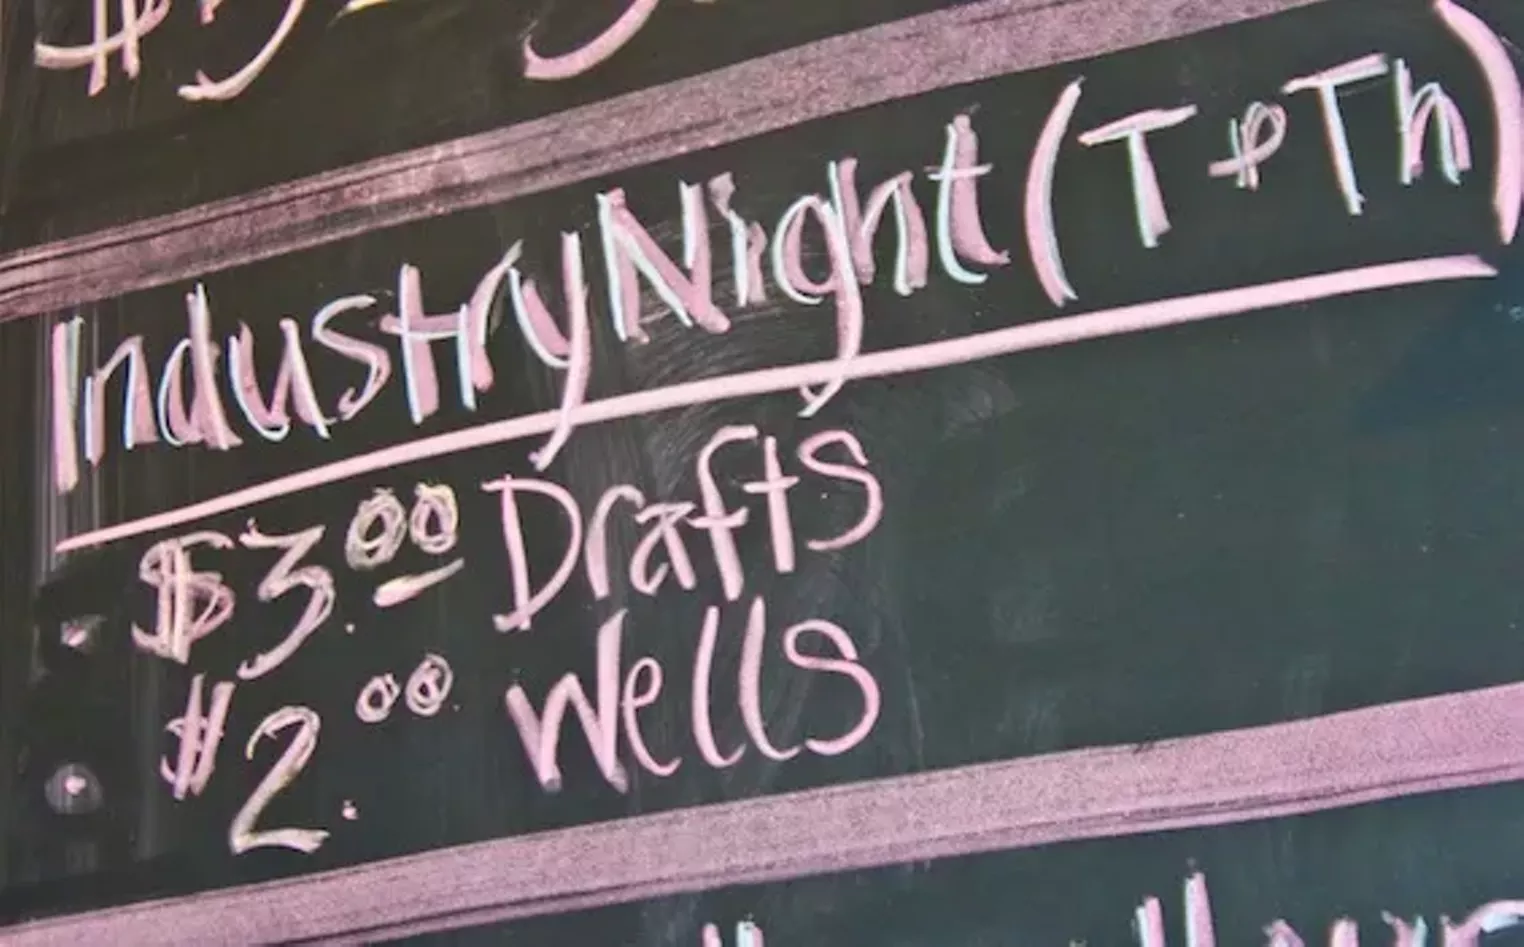 Industry Night (T & Th)
$3.00 Drafts
$2.00 Wells